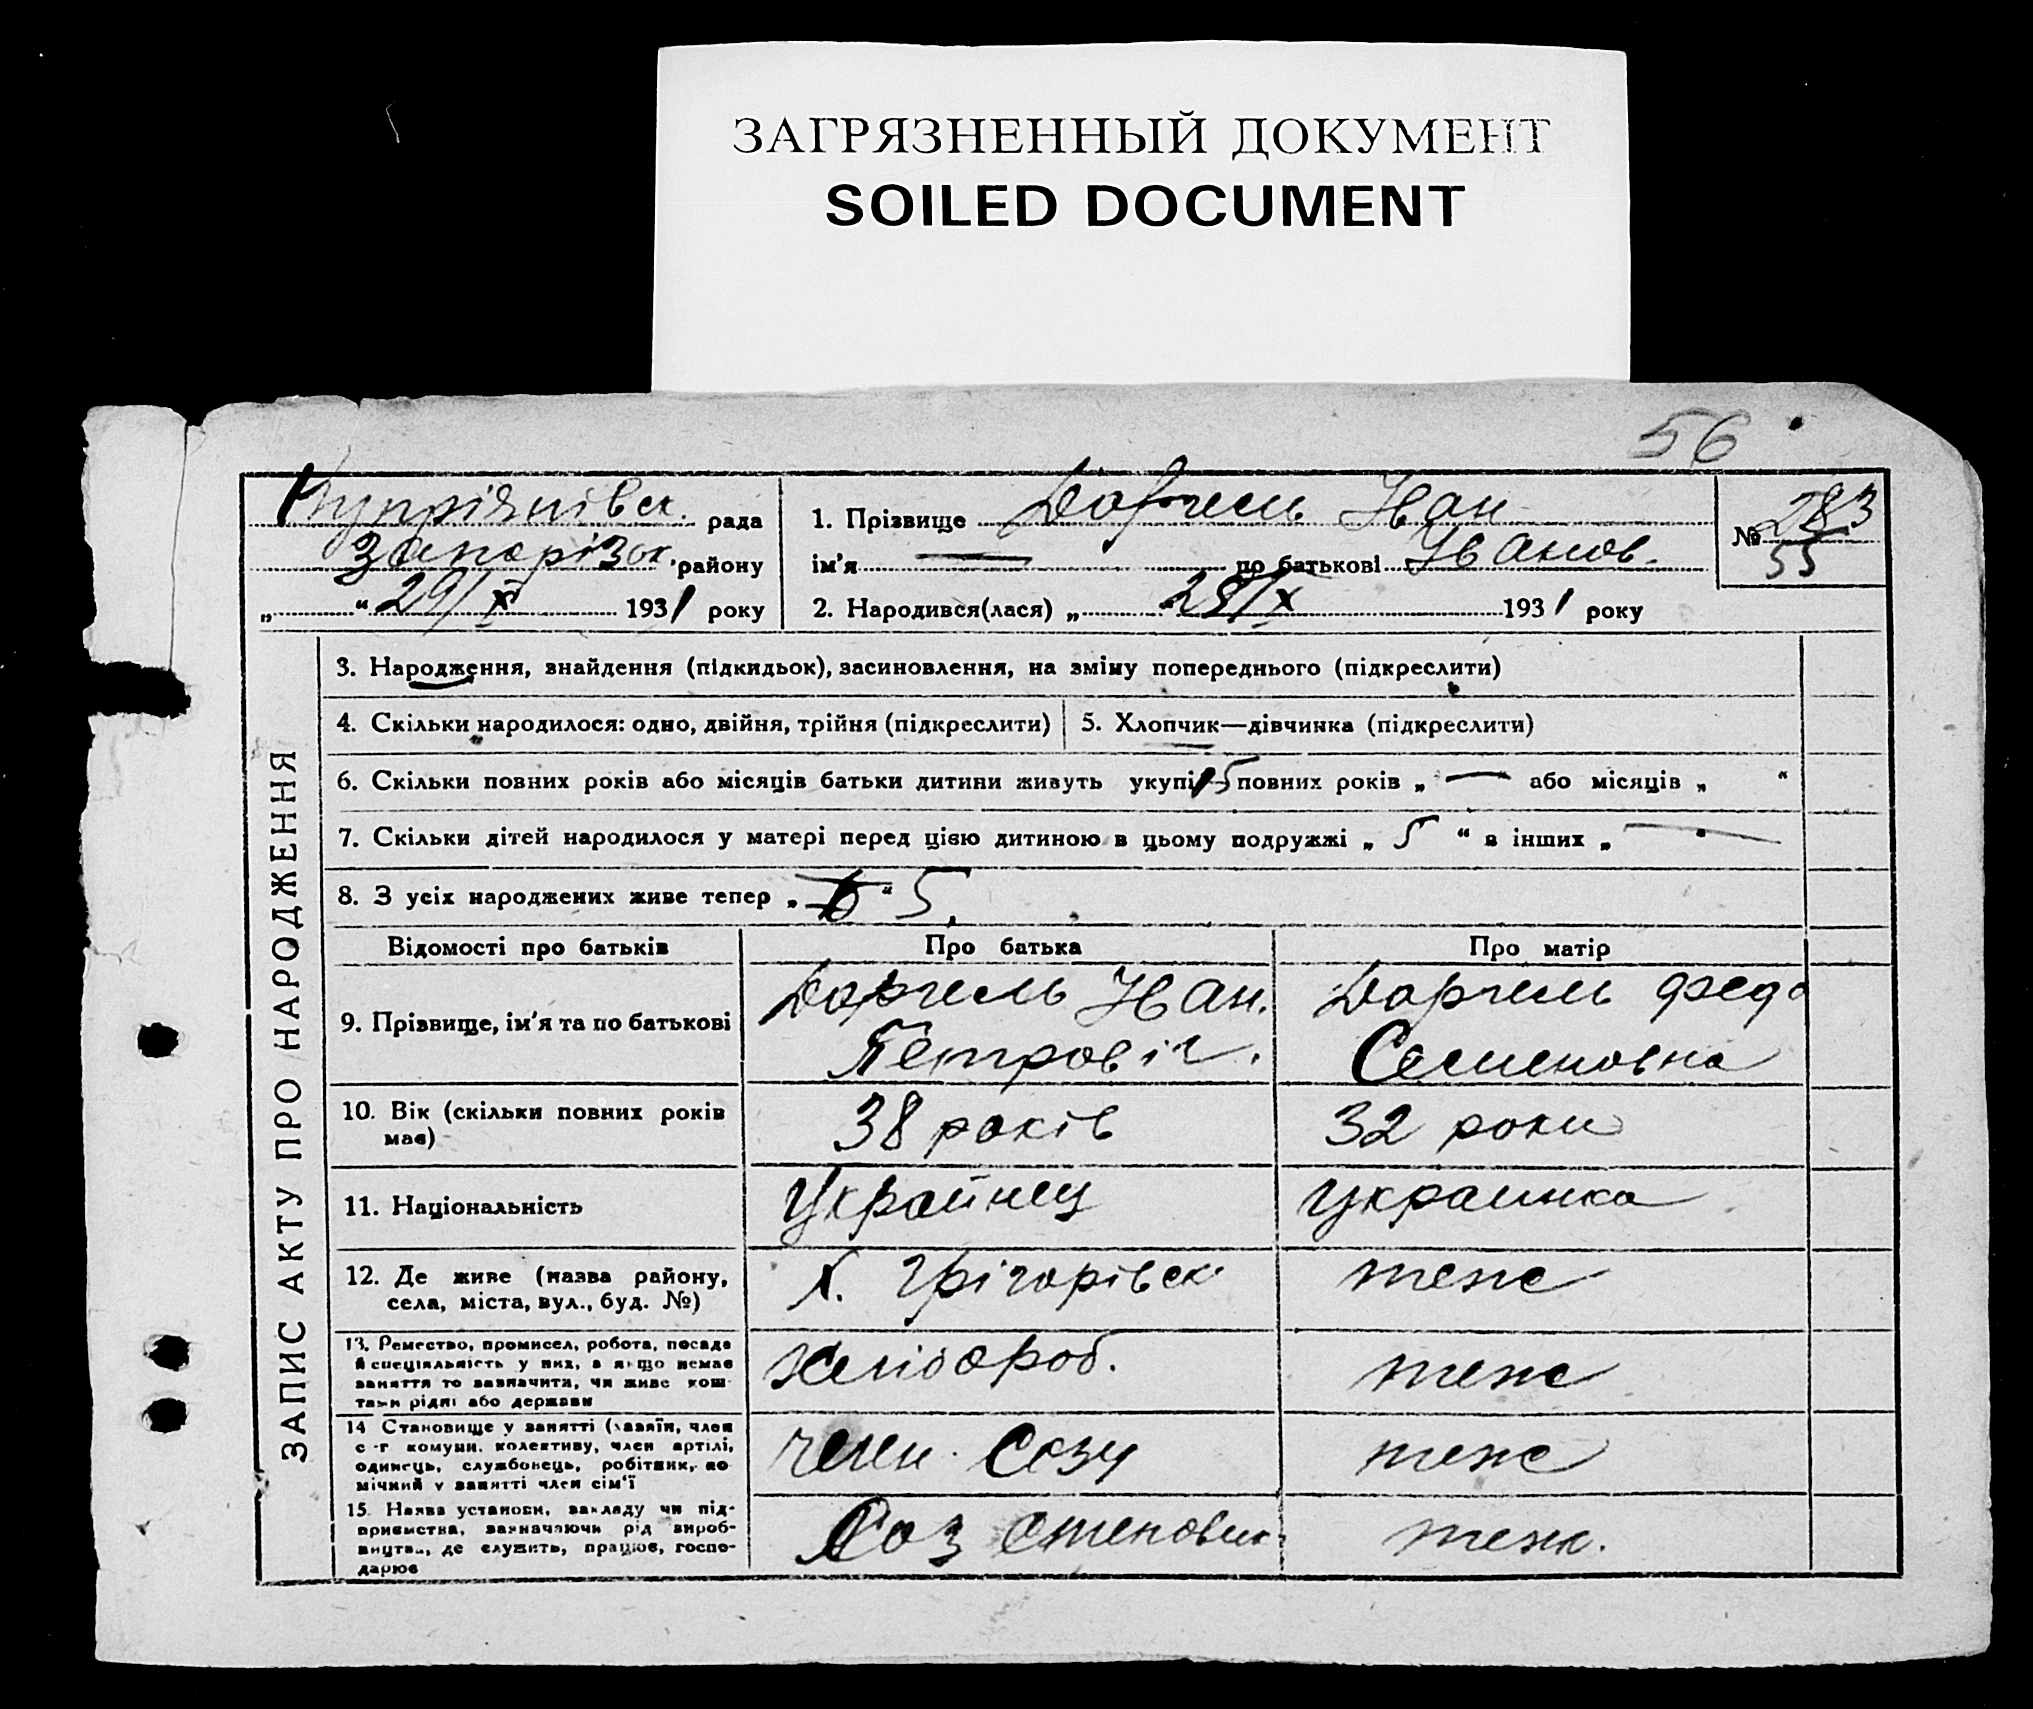 ЗАГРЯЗНЕННЫЙ ДОКУМЕНТ
SOILED DOCUMENT
56
Купріянівск. рада
Запорізск. району
„ “ 29/X 1931 року
1. Прізвище Даргель Іван
ім'я — по батькові Іванов.
2. Народився(лася) „ 28/X 1931 року
№ 283
55
ЗАПИС АКТУ ПРО НАРОДЖЕННЯ
3. Народження, знайдення (підкидьок), засиновлення, на зміну попереднього (підкреслити)
4. Скільки народилося: одно, двійня, трійня (підкреслити)
5. Хлопчик—дівчинка (підкреслити)
6. Скільки повних років або місяців батьки дитини живуть укупі 15 повних років „ — “ або місяців „ “
7. Скільки дітей народилося у матері перед цією дитиною в цьому подружжі „ 5 “ в інших „ — “
8. З усіх народжених живе тепер „ “ 5.
Відомості про батьків Про батька Про матір
9. Прізвище, ім'я та по батькові
Даргель Іван.
Петровіч.
Даргель Федо
Семеновна
10. Вік (скільки повних років
має)
38 років
32 роки
11. Національність
Украйнец
украинка
12. Де живе (назва району,
села, міста, вул., буд. №)
х. Грігорівск
теж
13. Ремество, промисел, робота, посада
й спеціяльність у них, а якщо немає
заняття то зазначити, чи живе кош-
тами рідні або держави
хлібороб.
теж
14 Становище у занятті (хазяїн, член
с-г комуни, колективу, член артілі,
одинець, службовець, робітник, по
мічний у занятті член сім'ї
член Созу
теж
15. Назва установи, закладу чи під-
приємства, зазначаючи рід вироб-
ництва, де служить, працює, госпо-
дарює
Соз степовик
теж.